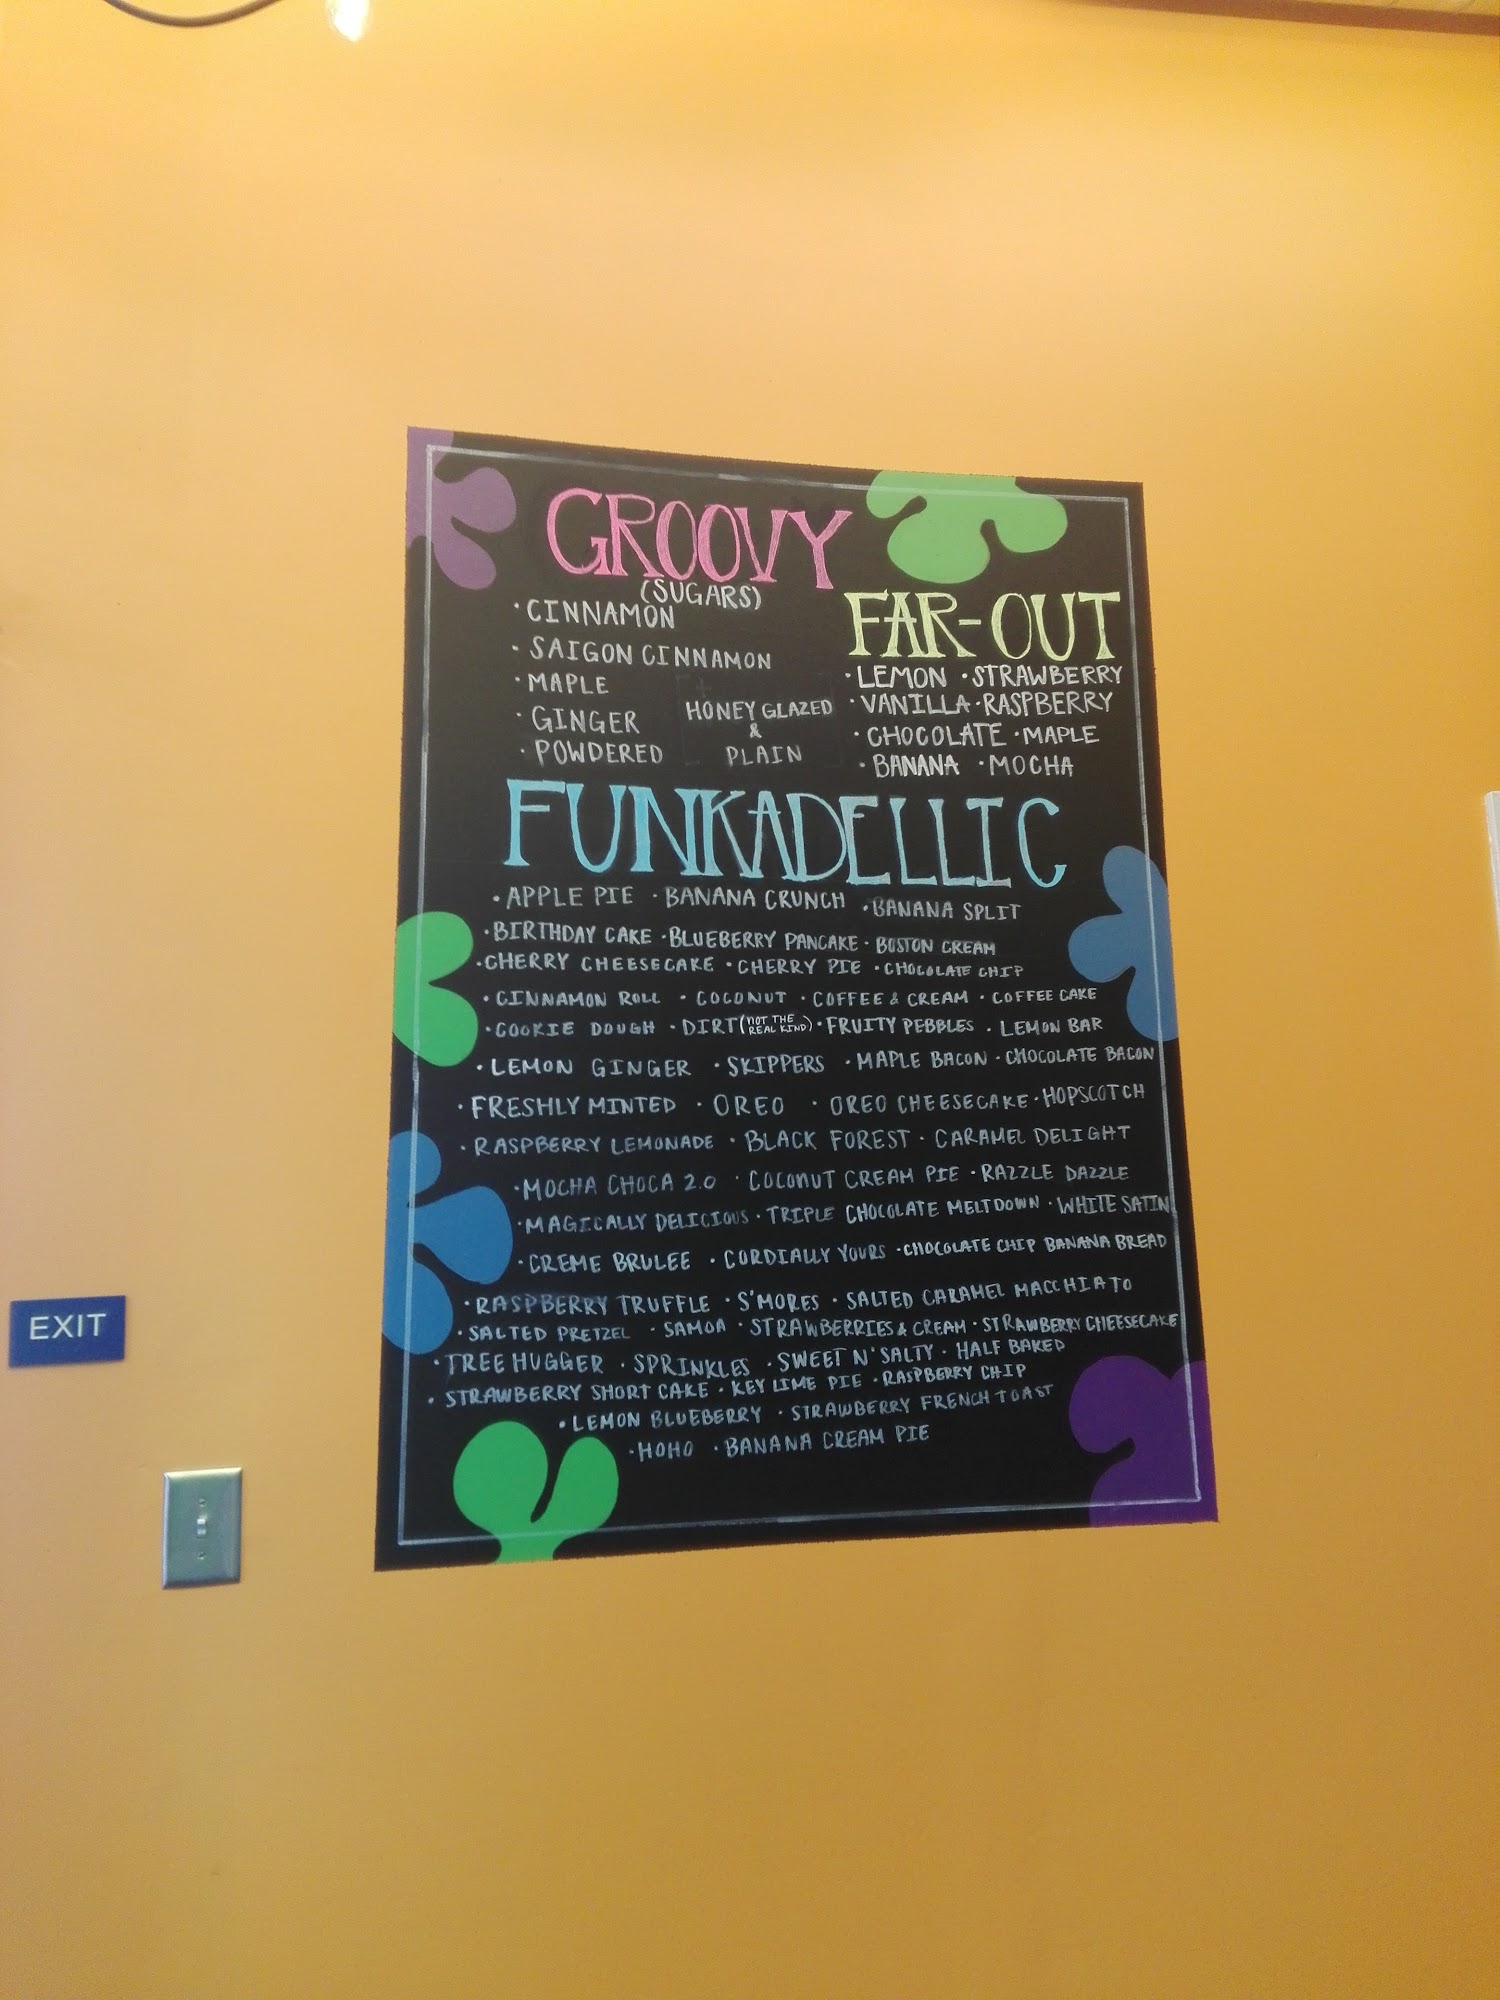 GROOVY
(SUGARS)
· CINNAMON
· SAIGON CINNAMON
· MAPLE
· GINGER
· POWDERED
HONEY GLAZED
&
PLAIN
FAR-OUT
· LEMON · STRAWBERRY
· VANILLA · RASPBERRY
· CHOCOLATE · MAPLE
· BANANA · MOCHA
FUNKADELLIC
· APPLE PIE · BANANA CRUNCH · BANANA SPLIT
· BIRTHDAY CAKE · BLUEBERRY PANCAKE · BOSTON CREAM
· CHERRY CHEESECAKE · CHERRY PIE · CHOCOLATE CHIP
· CINNAMON ROLL · COCONUT · COFFEE & CREAM · COFFEE CAKE
· COOKIE DOUGH · DIRT (NOT THE REAL KIND) · FRUITY PEBBLES · LEMON BAR
· LEMON GINGER · SKIPPERS · MAPLE BACON · CHOCOLATE BACON
· FRESHLY MINTED · OREO · OREO CHEESECAKE · HOPSCOTCH
· RASPBERRY LEMONADE · BLACK FOREST · CARAMEL DELIGHT
· MOCHA CHOCA 2.0 · COCONUT CREAM PIE · RAZZLE DAZZLE
· MAGICALLY DELICIOUS · TRIPLE CHOCOLATE MELTDOWN · WHITE SATIN
· CREME BRULEE · CORDIALLY YOURS · CHOCOLATE CHIP BANANA BREAD
· RASPBERRY TRUFFLE · S'MORES · SALTED CARAMEL MACCHIATO
· SALTED PRETZEL · SAMOA · STRAWBERRIES & CREAM · STRAWBERRY CHEESECAKE
· TREE HUGGER · SPRINKLES · SWEET N' SALTY · HALF BAKED
· STRAWBERRY SHORT CAKE · KEY LIME PIE · RASPBERRY CHIP
· LEMON BLUEBERRY · STRAWBERRY FRENCH TOAST
· HOHO · BANANA CREAM PIE
EXIT